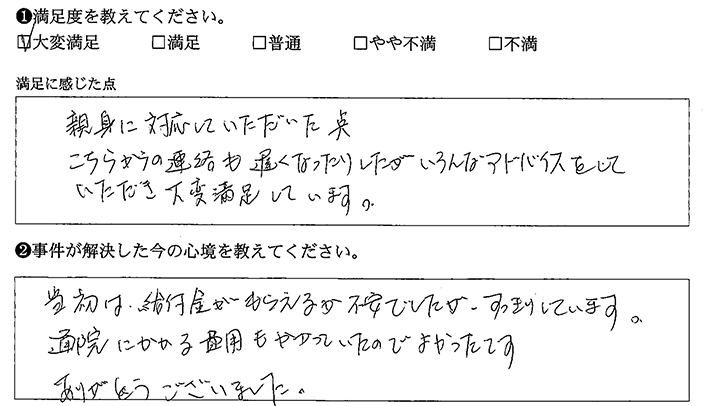 ❶満足度を教えてください。
☑大変満足 □満足 □普通 □やや不満 □不満
満足に感じた点
親身に対応していただいた点
こちらからの連絡も遅くなったりしたがいろんなアドバイスをして
いただき大変満足しています。
❷事件が解決した今の心境を教えてください。
当初は、給付金がもらえるか不安でしたが、すっきりしています。
通院にかかる費用もやっていたのでよかったです
ありがとうございました。